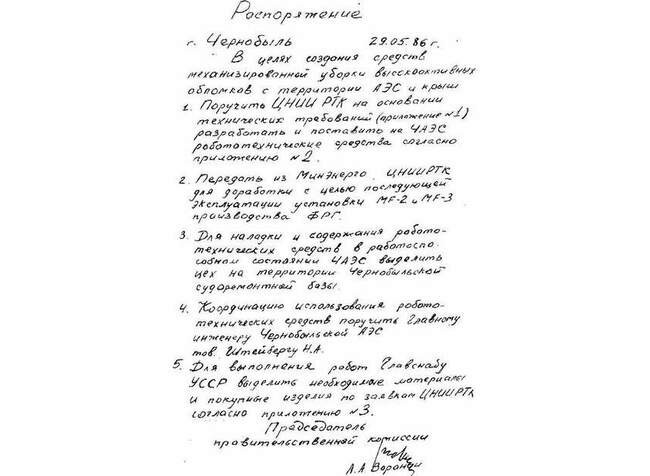 Распоряжение
г. Чернобыль 29.05.86 г.
В целях создания средств
механизированной уборки высокоактивных
обломков с территории АЭС и крыш
1. Поручить ЦНИИ РТК на основании
технических требований (приложение №1)
разработать и поставить на ЧАЭС
робототехнические средства согласно
приложению №2.
2. Передать из Минэнерго ЦНИИРТК
для доработки с целью последующей
эксплуатации установки MF-2 и MF-3
производства ФРГ.
3. Для наладки и содержания робото-
технических средств в работоспо-
собном состоянии ЧАЭС выделить
цех на территории Чернобыльской
судоремонтной базы.
4. Координацию использования робото-
технических средств поручить Главному
инженеру Чернобыльской АЭС
тов. Штейнбергу Н.А.
5. Для выполнения работ Главснабу
УССР выделить необходимые материалы
и покупные изделия по заявкам ЦНИИРТК
согласно приложению №3.
Председатель
правительственной комиссии
Л.А. Воронин